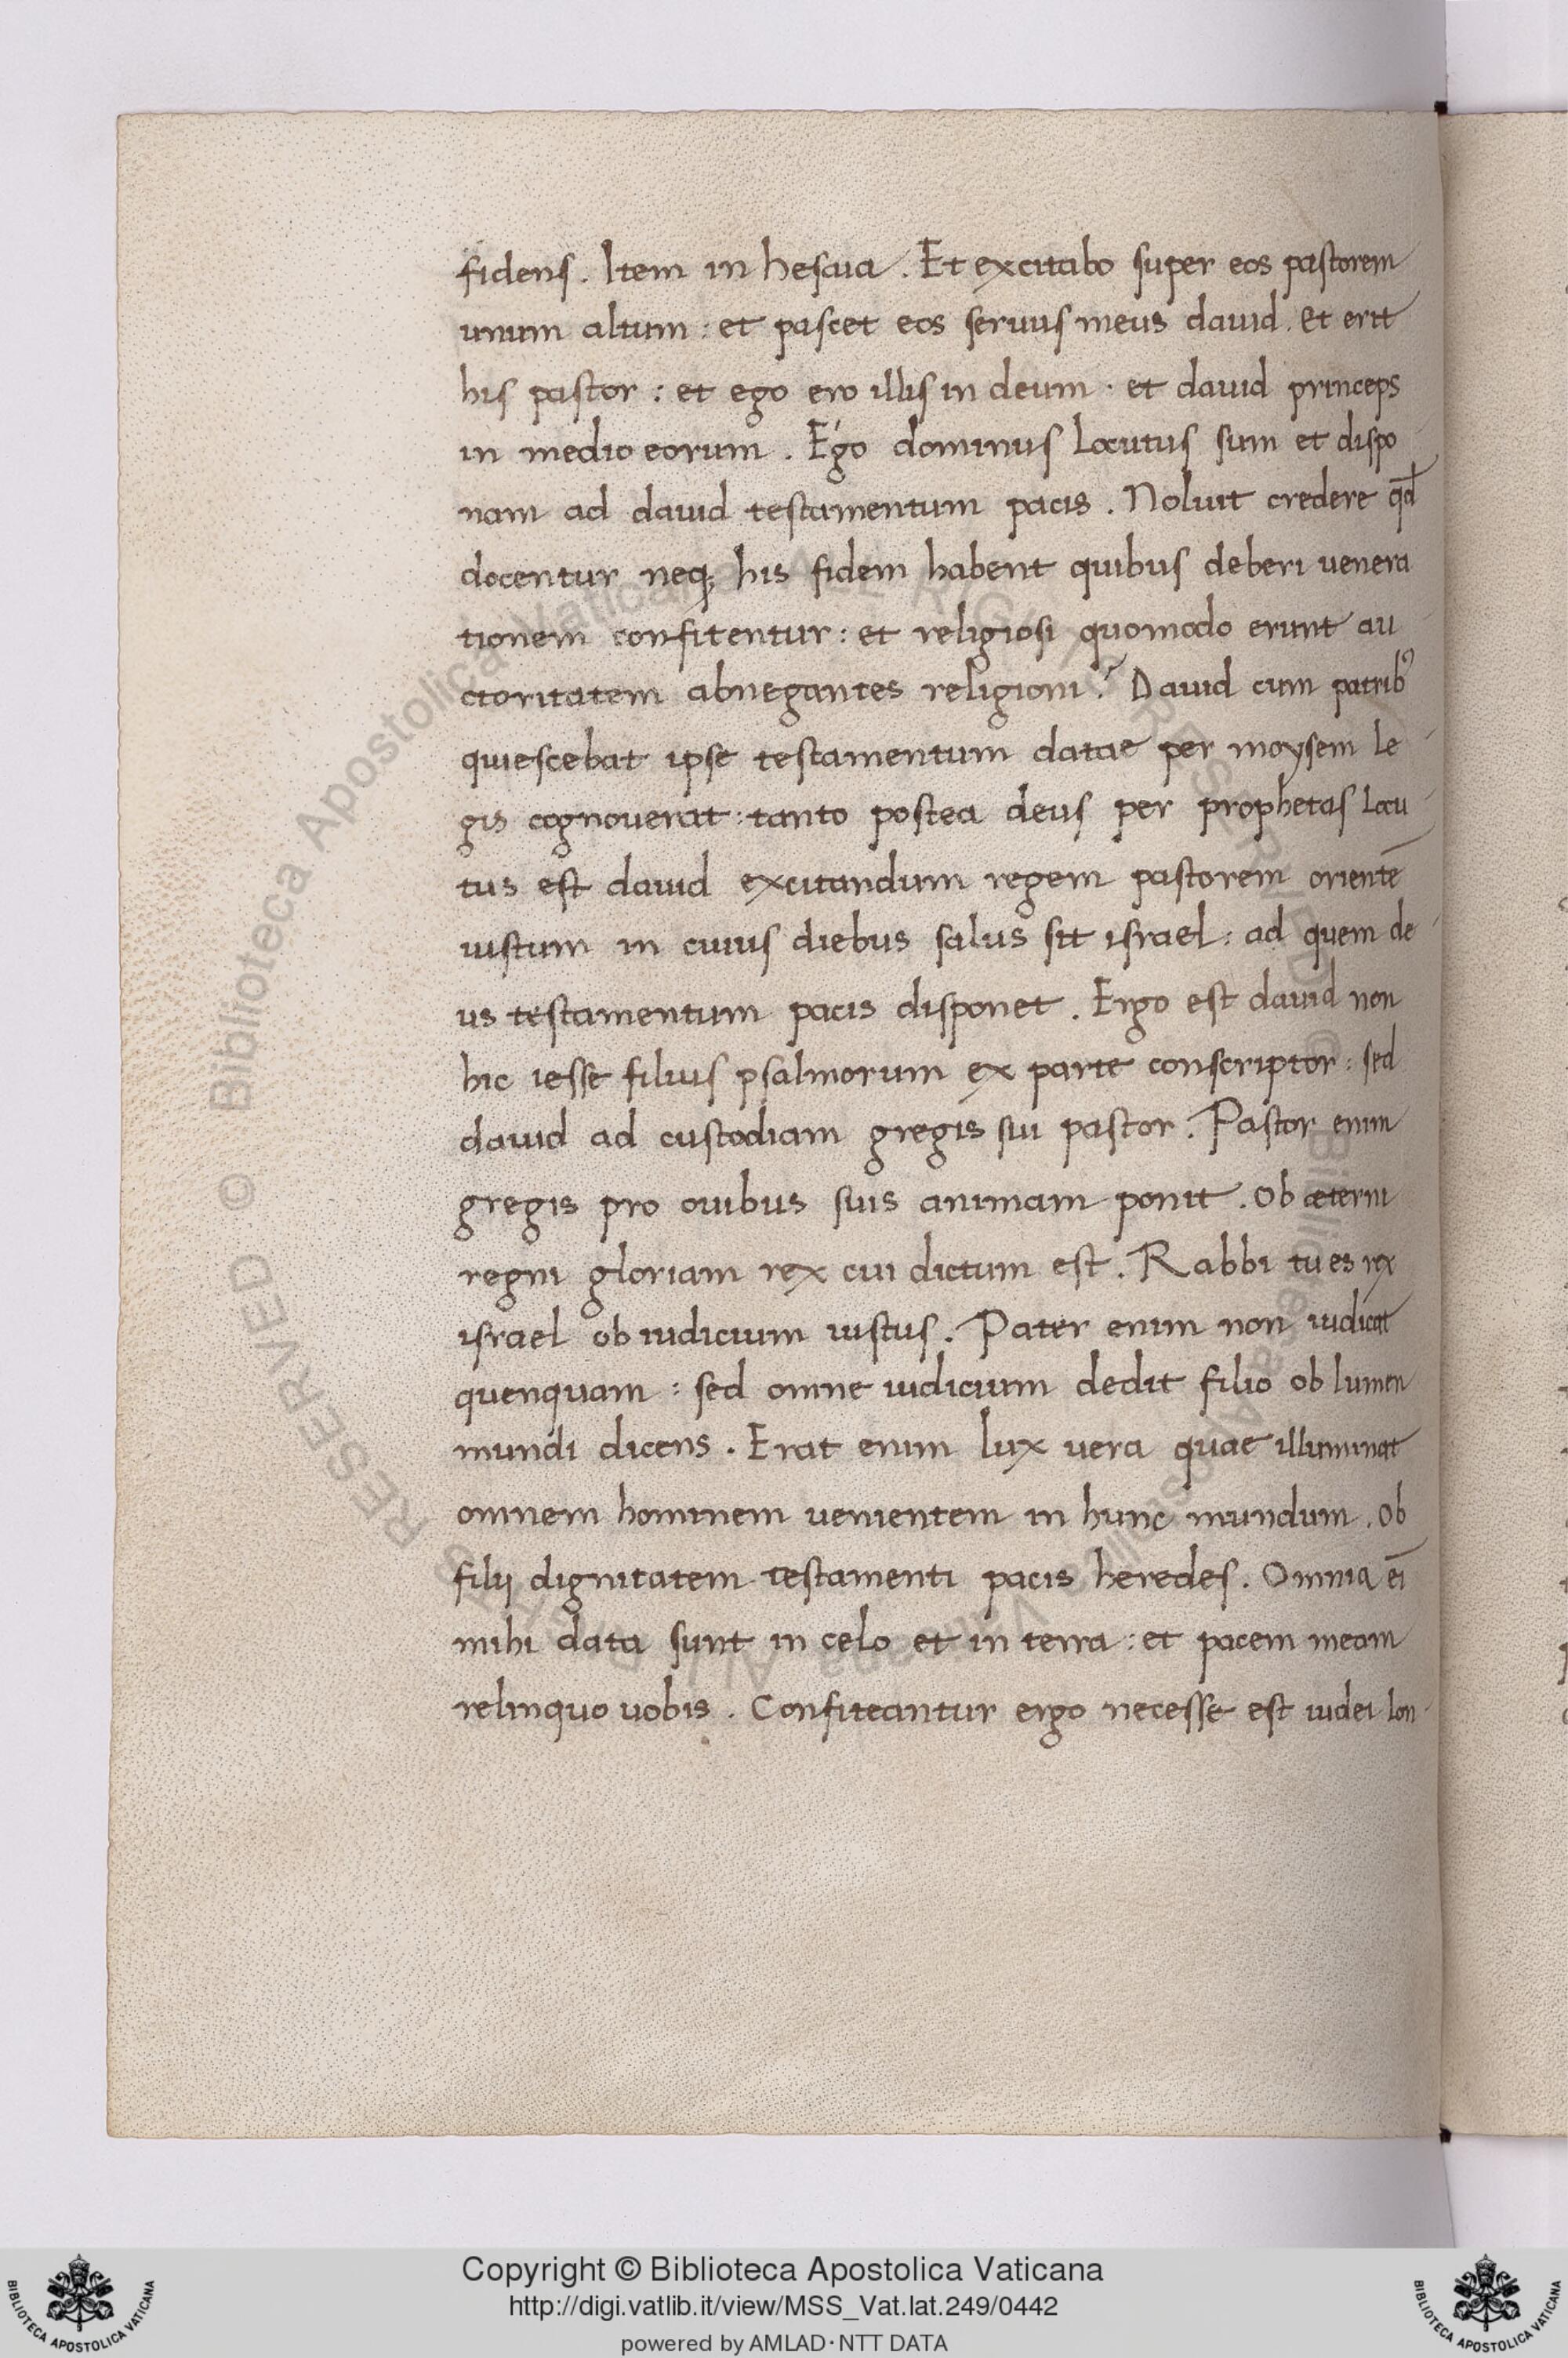 fidens. Item in hesaia. Et excitabo super eos pastorem
unum altum: et pascet eos seruus meus dauid. Et erit
his pastor: et ego ero illis in deum. et dauid princeps
in medio eorum. Ego dominus locutus sum et dispo
nam ad dauid testamentum pacis. Noluit credere qđ
docentur neq; his fidem habent quibus deberi uenera
tionem confitentur: et religiosi quomodo erunt au
ctoritatem abnegantes religioni? Dauid cum patribꝰ
quiescebat ipse testamentum datae per moysem le
gis cognouerat: tanto postea deus per prophetas locu
tus est dauid excitandum regem pastorem orientē
iustum in cuius diebus salus sit israel: ad quem de
us testamentum pacis disponet. Ergo est dauid non
hic iesse filius psalmorum ex parte conscriptor: sed
dauid ad custodiam gregis sui pastor. Pastor enim
gregis pro ouibus suis animam ponit. Ob æterni
regni gloriam rex cui dictum est. Rabbi tu es rex
israel ob iudicium iustus. Pater enim non iudicat
quenquam: sed omne iudicium dedit filio ob lumen
mundi dicens. Erat enim lux uera quae illuminat
omnem hominem uenientem in hunc mundum. Ob
filij dignitatem testamenti pacis heredes. Omnia ei̅
mihi data sunt in celo et in terra: et pacem meam
relinquo uobis. Confiteantur ergo necesse est iudei lon
Biblioteca Apostolica Vaticana
ALL RIGHTS RESERVED
© Biblioteca Apostolica Vaticana
ALL RIGHTS RESERVED ©
Copyright © Biblioteca Apostolica Vaticana
http://digi.vatlib.it/view/MSS_Vat.lat.249/0442
powered by AMLAD·NTT DATA
BIBLIOTECA APOSTOLICA VATICANA
BIBLIOTECA APOSTOLICA VATICANA